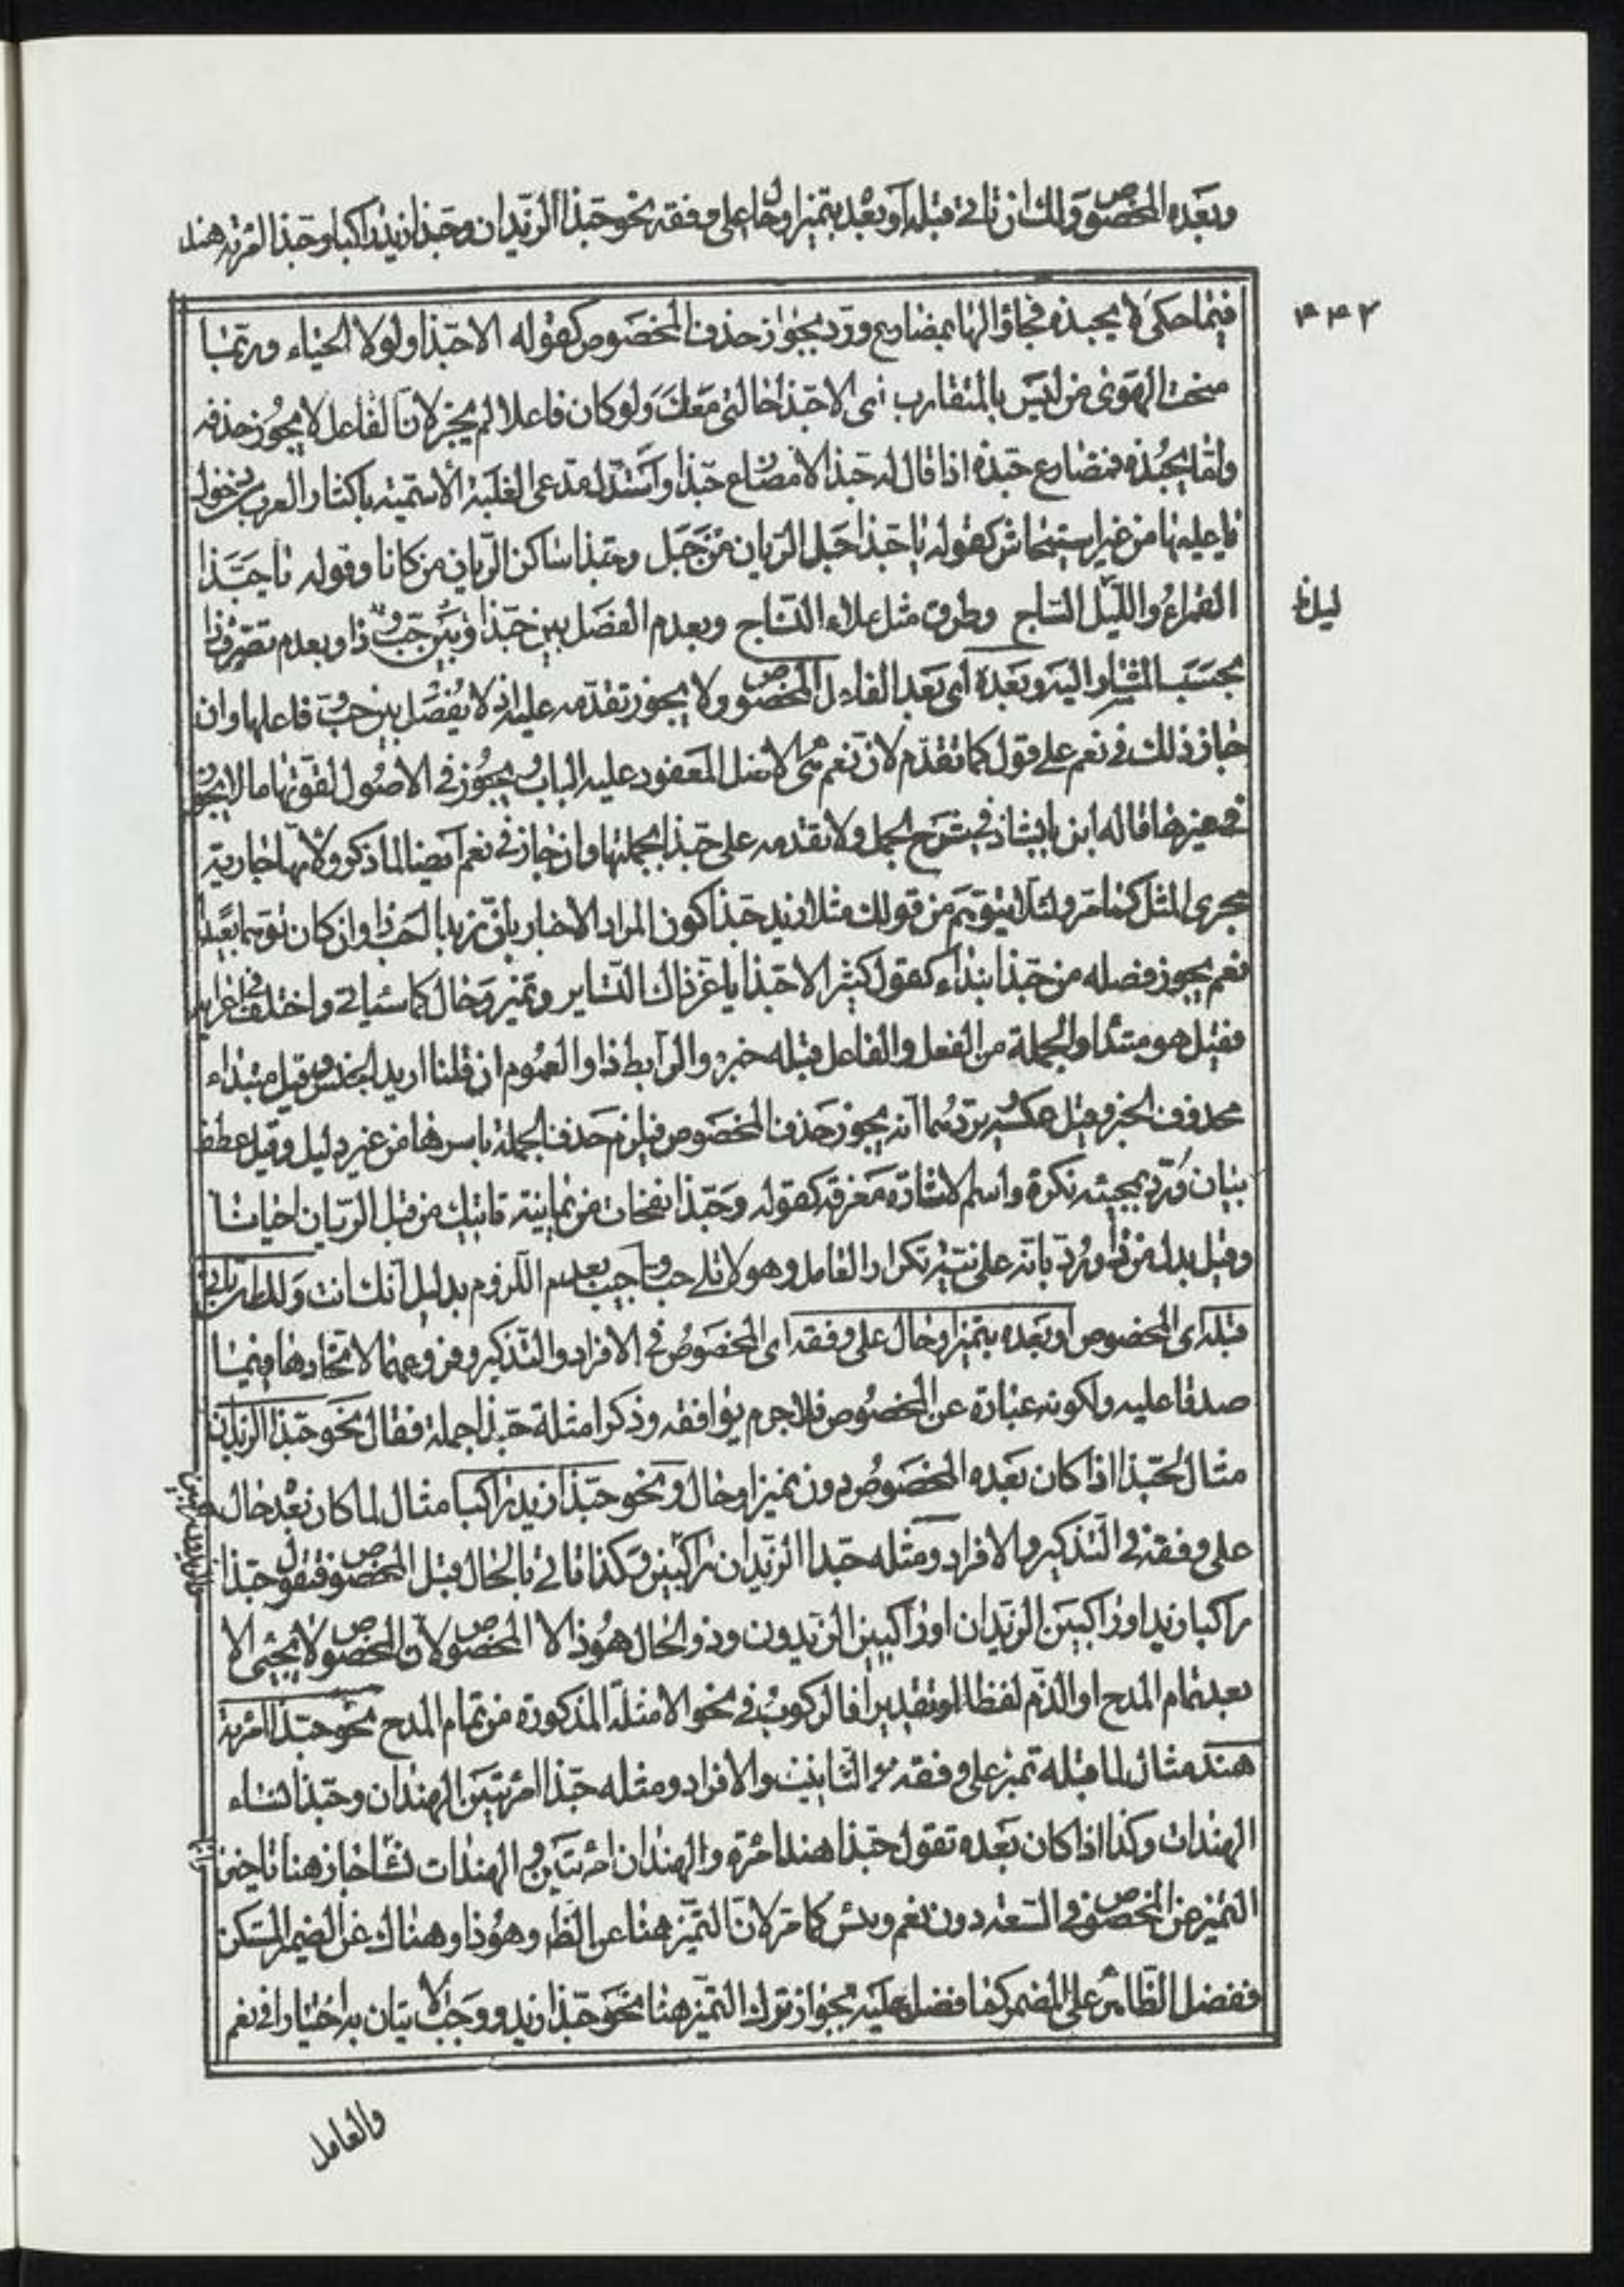 وبعده المخصوص ولك ان تاتى قبله او بعده بتميز او حال على وفقه نحو حبذا الزيدان وحبذا زيد راكبا وحبذا امرئة هند
٣٤٢
فيما حكى لا يحبذه فجاؤا لها بمضارع ورد بجواز حذف المخصوص كقوله الا حبذا ولولا الحياء وربما
منحت الهوى من ليس بالمتقارب اى الا حبذا حالتى معك ولو كان فاعلا لم يجز لان الفاعل لا يجوز حذفه
واما يحبذه فمضارع حبذه اذا قال له حبذا لا مضارع حبذا واستدل مدعى الغلبة الاسمية باكثار العرب دخول
يا عليها من غير استيحاش كقوله يا حبذا جبل الريان من جبل وحبذا ساكن الريان من كانا وقوله يا حبذا
القمراء والليل الساج وطرق مثل ملاء النساج وبعدم الفصل بين حبذا وبين حب و ذا وبعدم تصرف ذا
ليل
بحسب المشار اليه وبعده اى بعد الفاعل المخصوص ولا يجوز تقدمه عليه اذ لا يفصل بين حب و فاعلها وان
جاز ذلك فى نعم على قول كما تقدم لان نعم هى الاصل المعقود عليه الباب ويجوز فى الاصول لقوتها ما لا يجوز
فى غيرها قاله ابن بابشاذ فى شرح الجمل ولا تقدمه على حبذا بجملتها وان جاز فى نعم ايضا لما ذكر ولانها جارية
مجرى المثل كما مر ولئلا يتوهم من قولك مثلا زيد حبذا كون المراد الاخبار بان زيدا احب ذا وان كان توهما بعيدا
نعم يجوز فصله من حبذا بنداء كقول كثير الا حبذا يا عز ذاك التساير وتميز وحال كما سياتى واختلف فى اعرابه
فقيل هو مبتدا والجملة من الفعل والفاعل قبله خبره والرابط ذا او العموم ان قلنا اريد الجنس وقيل مبتداء
محذوف الخبر وقيل عكسه يردهما انه يجوز حذف المخصوص فيلزم حذف الجملة باسرها من غير دليل وقيل عطف
بيان ورد بمجيئه نكرة واسم الاشارة معرفة كقوله وحبذا نفحات من يمانية تاتيك من قبل الريان احيانا
وقيل بدل من ذا ورد بانه على نية تكرار العامل وهو لا يلى حب واجيب بعدم اللزوم بدليل انك انت ولك ان تاتى
قبله اى المخصوص او بعده بتميز او حال على وفقه اى المخصوص فى الافراد والتذكير وفروعهما لاتحادهما فيما
صدقا عليه ولكونه عبارة عن المخصوص فلا جرم يوافقه وذكر امثلة حبذا جملة فقال نحو حبذا الزيدان
مثال لحبذا اذا كان بعده المخصوص دون تميز او حال ونحو حبذا زيد راكبا مثال لما كان بعده حال
على وفقه فى التذكير والافراد ومثله حبذا الزيدان راكبين وكذا تاتى بالحال قبل المخصوص فتقول حبذا
راكبا زيد او راكبين الزيدان او راكبين الزيدون وذو الحال هو ذا لا المخصوص لان المخصوص لا يجئى الا
بعد تمام المدح او الذم لفظا او تقديرا فالركوب فى نحو الامثلة المذكورة من تمام المدح نحو حبذا امرئة
هند مثال لما قبله تميز على وفقه فى التانيث والافراد ومثله حبذا امرئتين الهندان وحبذا نساء
الهندات وكذا اذا كان بعده تقول حبذا هند امرئة والهندان امرئتين و الهندات نساء جاز هنا تاخير
التميز عن المخصوص فى السعة دون نعم وبئس كما مر لان التميز هنا عن الظاهر وهو ذا وهناك عن الضمير المستكن
ففضل الظاهر على المضمر كما فضل عليه بجواز ترك التميز هنا نحو حبذا زيد ووجب الاتيان به اختيارا فى نعم
والعامل